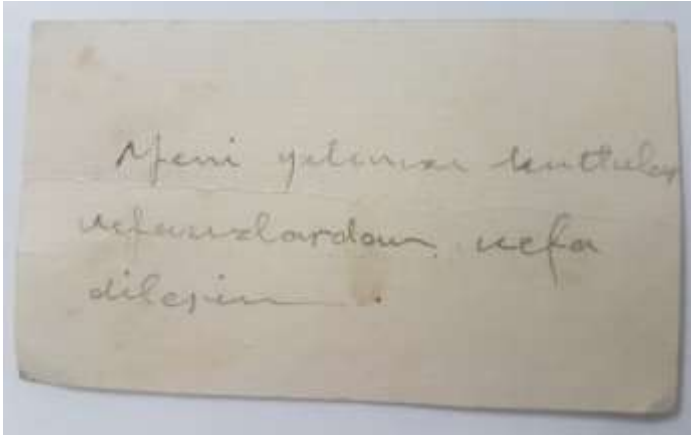 Yeni yılınızı
vefasızlardan vefa
dilerim .